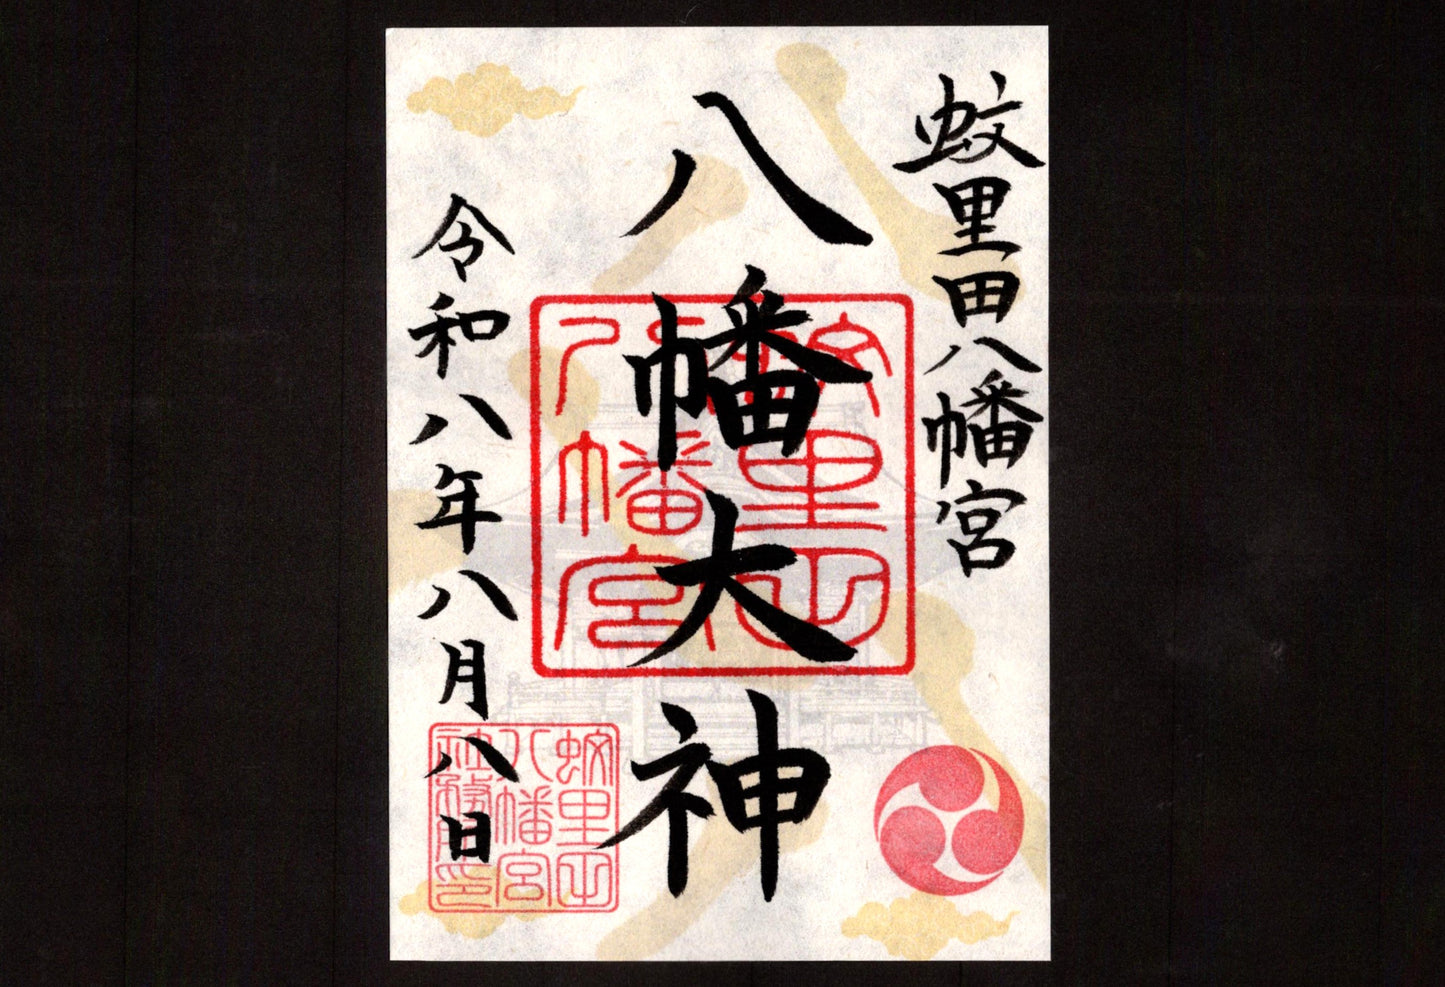 蚊里田八幡宮
八幡大神
令和八年八月八日
蚊里田八幡宮
蚊里田八幡宮社務所印